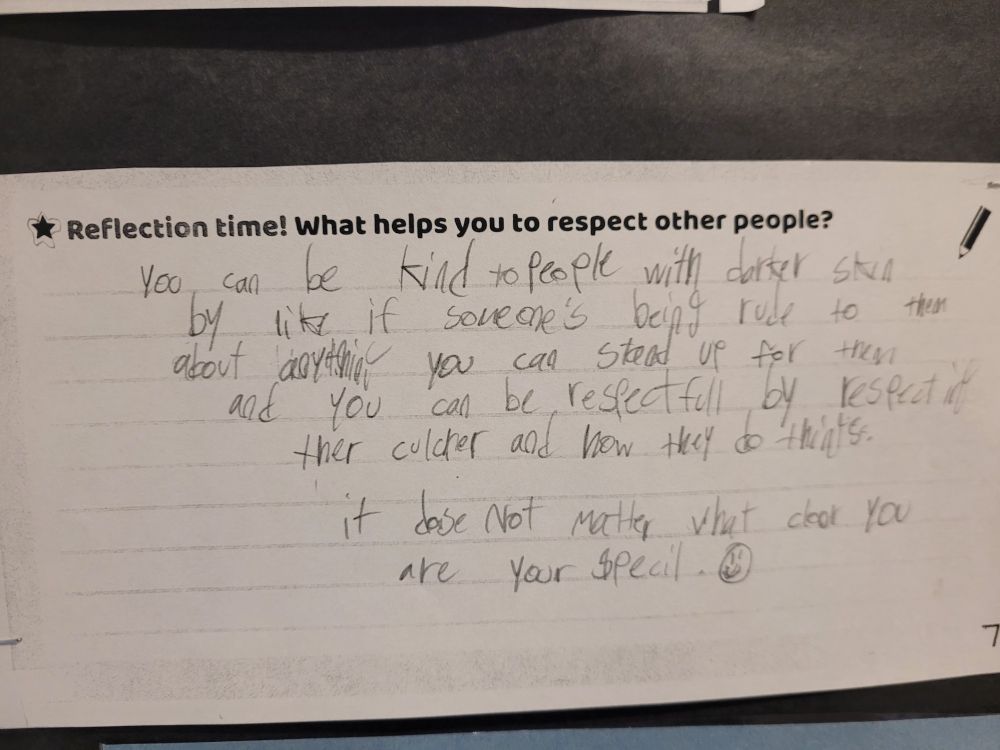 Reflection time! What helps you to respect other people?
You can be kind to people with darker skin
by like if someone's being rude to them
about anything you can stand up for them
and you can be respectfull by respect it
ther culcher and how they do things.
it dose Not matter what cloor you
are your specil.
7